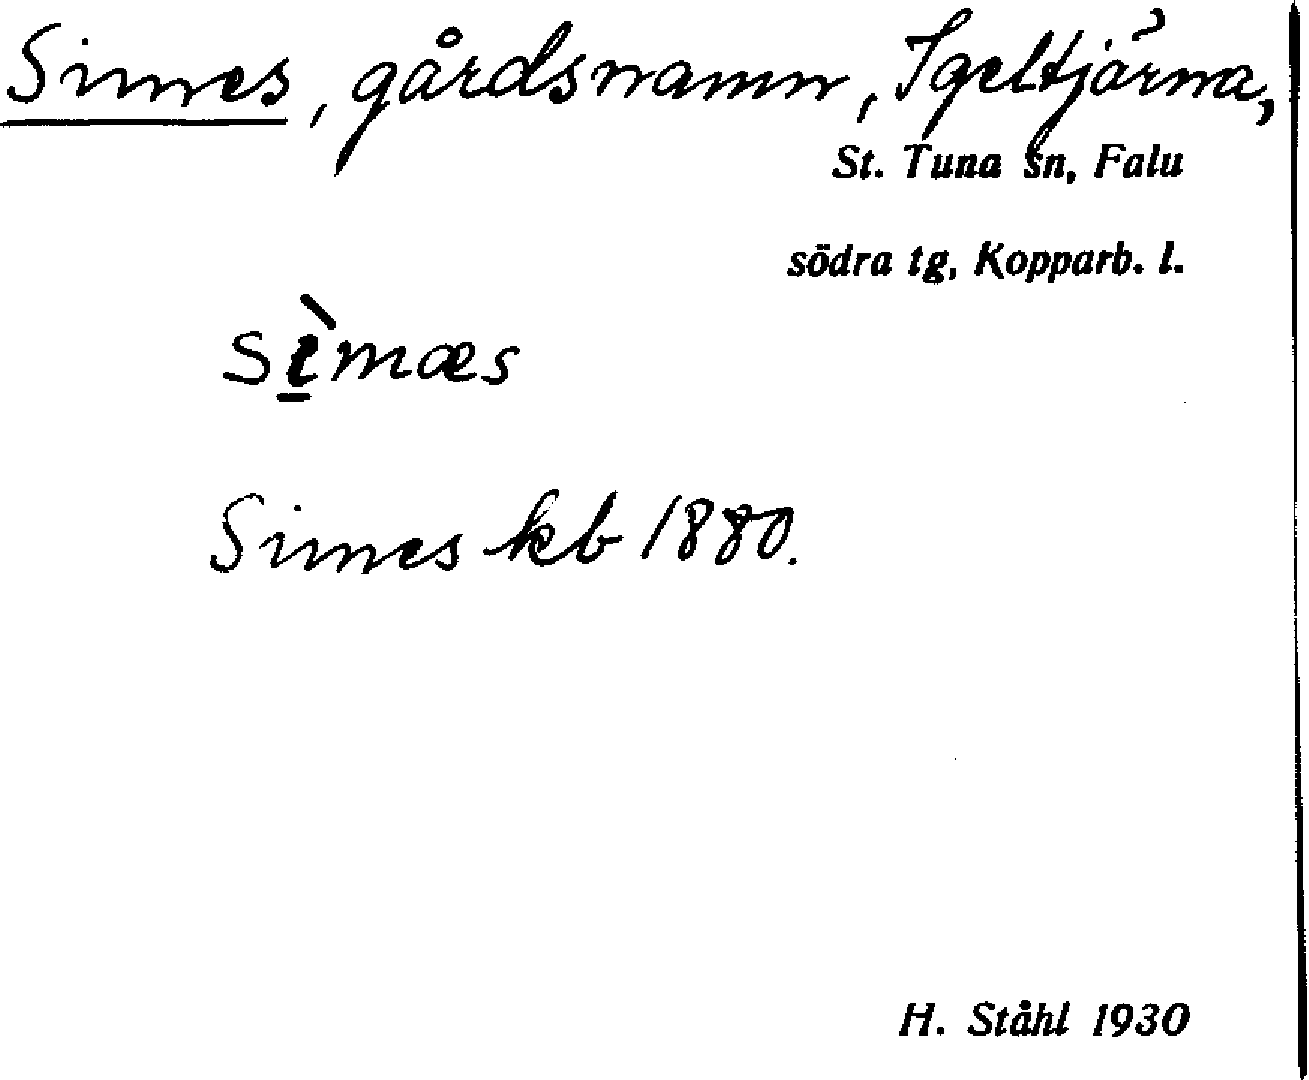 Simes, gårdsnamn, Igeltjärna,
St. Tuna sn, Falu
södra tg, Kopparb. l.
sı̲̀mæs
Simes kb 1880.
H. Ståhl 1930